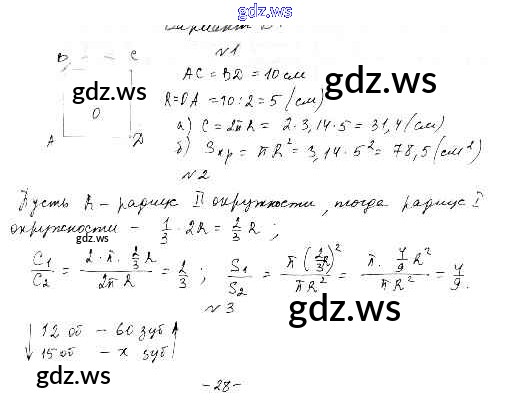 gdz.ws
Вариант 2.
№1
B C
AC = BD = 10 см
gdz.ws
gdz.ws
R = OA = 10 : 2 = 5 (см)
O
а) C = 2πR = 2·3,14·5 = 31,4 (см)
A D
б) Sкр = πR² = 3,14·5² = 78,5 (см²)
№2
Пусть R - радиус II окружности, тогда радиус I
окружности - 1/3 · 2R = 2/3 R ;
gdz.ws
C₁/C₂ = (2·π·2/3 R)/(2πR) = 2/3 ; S₁/S₂ = π(2/3 R)²/πR² = (π·4/9 R²)/(πR²) = 4/9.
№3
gdz.ws
↓ 12 об - 60 зуб ↑
↓ 15 об - x зуб ↑
gdz.ws
-28-